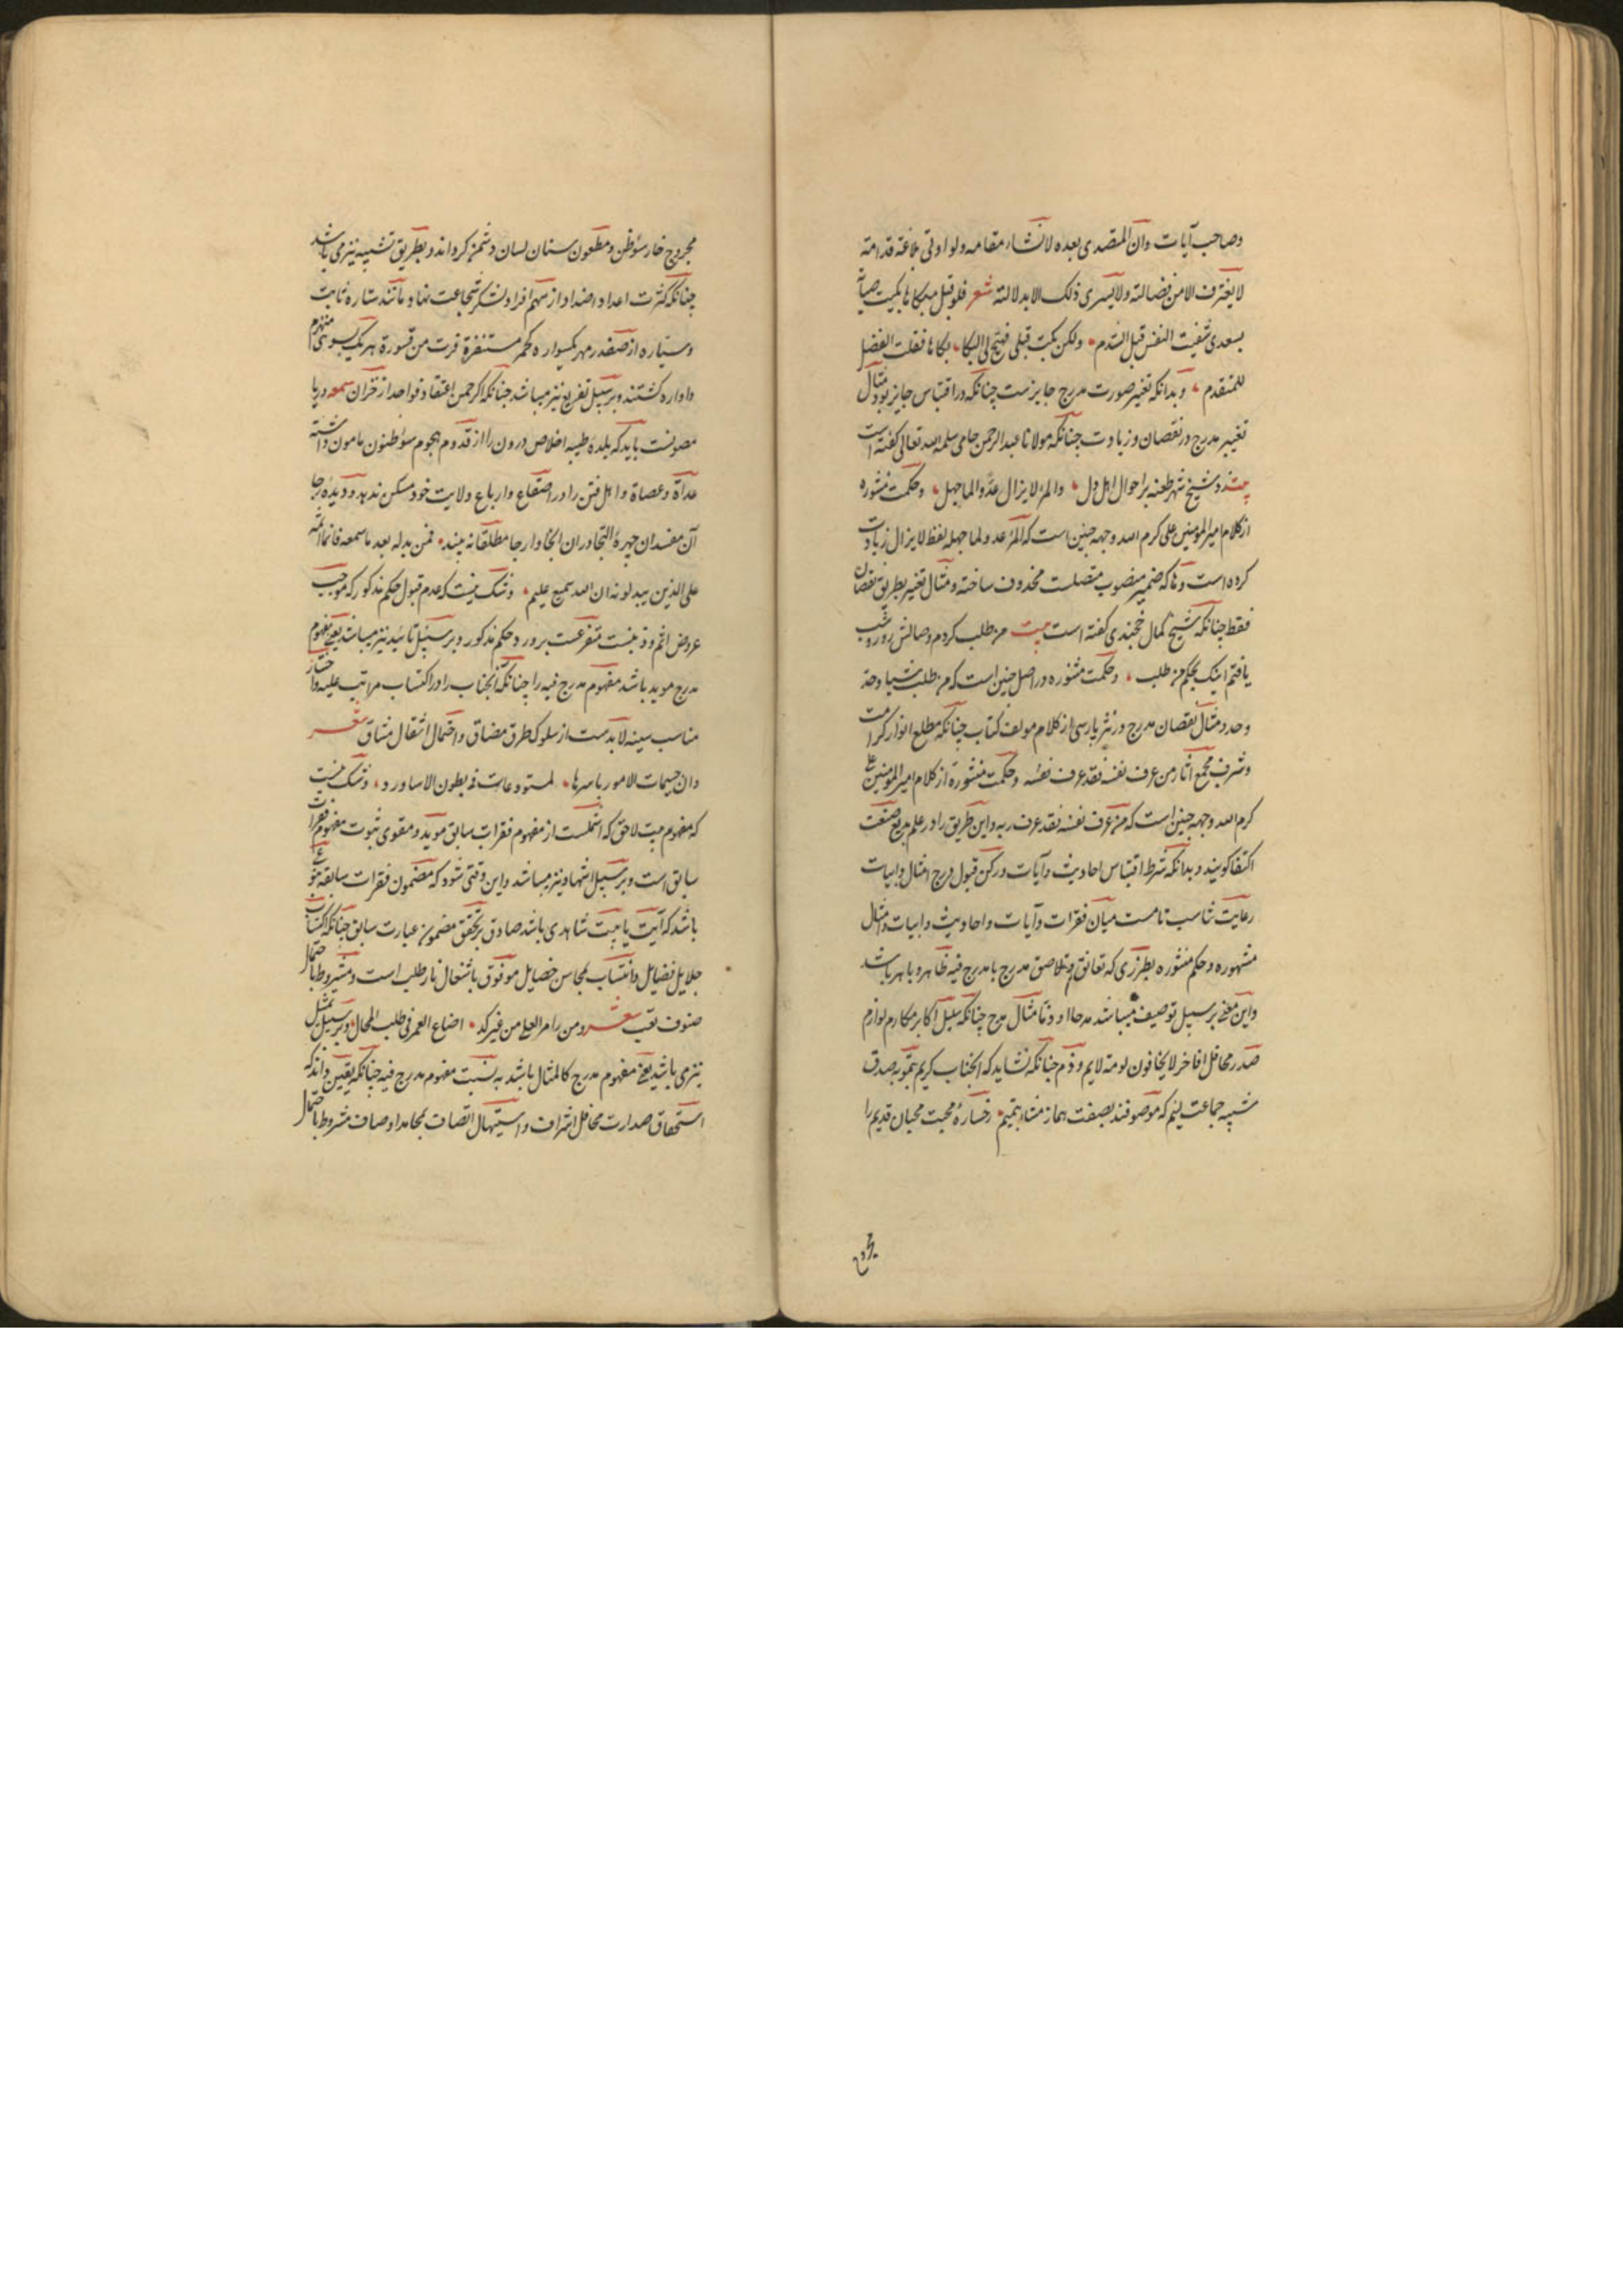 وصاحب آیات وان المتصدی بعده لانشاء مقامه ولو اوتی بلاغة قدامة
لا یغترف الا من فضالته ولا یسری ذلک الا بدلالته شعر فلو قبل مبکاها بکیت صبابة
بسعدی شفیت النفس قبل التندم ولکن بکت قبلی فهیج لی البکا بکاها فقلت الفضل
للمتقدم وبدانکه تغییر صورت مدرج جایزست چنانکه در اقتباس جایز بود مثال
تغییر مدرج در نقصان و زیادت چنانکه مولانا عبدالرحمن جامی سلمه الله تعالی گفته است
بیت زد شیخ شهر طعنه بر احوال اهل دل والمرء لا یزال عدوا لما جهل وحکمت منثوره
از کلام امیر المومنین علی کرم الله وجهه چنین است که المرء عدو لما جهله لفظ لا یزال زیادت
کرده است وها که ضمیر منصوب متصلست محذوف ساخته و مثال تغییر بطریق نقصان
فقط چنانکه شیخ کمال خجندی گفته است بیت من طلب کردم وصالش روز و شب
یافتم اینک بحکم من طلب وحکمت منثوره در اصل چنین است که من طلب شیئا وجد
وجد و مثال نقصان مدرج در نثر پارسی از کلام مولف کتاب چنانکه مطلع انوار کرامت
وشرف مجمع آثار من عرف نفسه فقد عرف نفسه وحکمت منثوره از کلام امیر المومنین علی
کرم الله وجهه چنین است که من عرف نفسه فقد عرف ربه واین طریق را در علم بدیع صنعت
اکتفا گویند وبدانکه شرط اقتباس احادیث وآیات ورکن قبول درج امثال وابیات
رعایت تناسب تامست میان فقرات وآیات واحادیث وابیات وامثال
مشهوره وحکم منثوره بطرزی که تعانق وتلاصق مدرج با مدرج فیه ظاهر وباهر باشد
واین معنی بر سبیل توصیف میباشد مدحا او ذما مثال مدح چنانکه سبیل اکابر مکارم لوازم
صدر محافل افاخر لا یخافون لومة لایم وذم چنانکه نشاید که آنجناب کریم بتموه صدق
شبیه جماعت لئیم که موصوفند بصفت هماز مشاء بنمیم رخساره محبت محبان قدیم را
مجروح
مجروح خار سؤظن ومطعون سنان لسان دشمن کرداند وبطریق تشبیه نیز می باشد
چنانکه کثرت اعداد اضداد از سهم افراد لشکر شجاعت نهاد مانند ستاره ثابت
وسیاره از صفدر مهر یکسواره کحمر مستنفرة فرت من قسورة هر یک بسوئی منهزم
واواره کشتند وبر سبیل تفریع نیز میباشد چنانکه اگر چمن اعتقاد فواحد از خزان سمعه وریا
مصونست باید که بلده طیبه اخلاص درون را از قدوم هجوم سؤظنون مامون داشته
عداة وعصاة واهل فتن را در اصقاع وارباع ولایت خود مسکن ندهد ودیده رجا
آن مفسدان چهره التجا در ان انحا وارجا مطلقا نه بیند فمن بدله بعد ما سمعه فانما اثمه
علی الذین یبدلونه ان الله سمیع علیم وشک نیست که عدم قبول حکم مذکور که موجب
عروض اثم وذنبست متفرعست برورود حکم مذکور وبر سبیل تایید نیز میباشد یعنی مفهوم
مدرج موید باشد مفهوم مدرج فیه را چنانکه آنجناب را در اکتساب مراتب علیه واختیار
مناسب سنیه لا بدست از سلوک طرق مضاق واحتمال اثقال مشاق شعر
وان جسیمات الامور باسرها لمستودعات فی بطون الاساود وشک نیست
که مفهوم بیت لاحق که اشملست از مفهوم فقرات سابق موید ومقوی ثبوت مفهوم فقرات
سابق است وبر سبیل استشهاد نیز میباشد واین وقتی شود که مضمون فقرات سابقه
باشد که آیت یا بیت شاهدی باشد صادق بر تحقق مضمون عبارت سابق چنانکه اکتساب
جلایل فضایل وانتساب بمحاسن خصایل موقوف باشتعال نار طلب است ومشروط باحتمال
صنوف تعب شعر ومن رام العلی من غیر کد اضاع العمر فی طلب المحال وبر سبیل تمثیل
نیز می باشد یعنی مفهوم مدرج کالمثال باشد به نسبت مفهوم مدرج فیه چنانکه یقین داند که
استحقاق صدارت محافل اشراف واستیهال اتصاف بمحامد اوصاف مشروط باحتمال